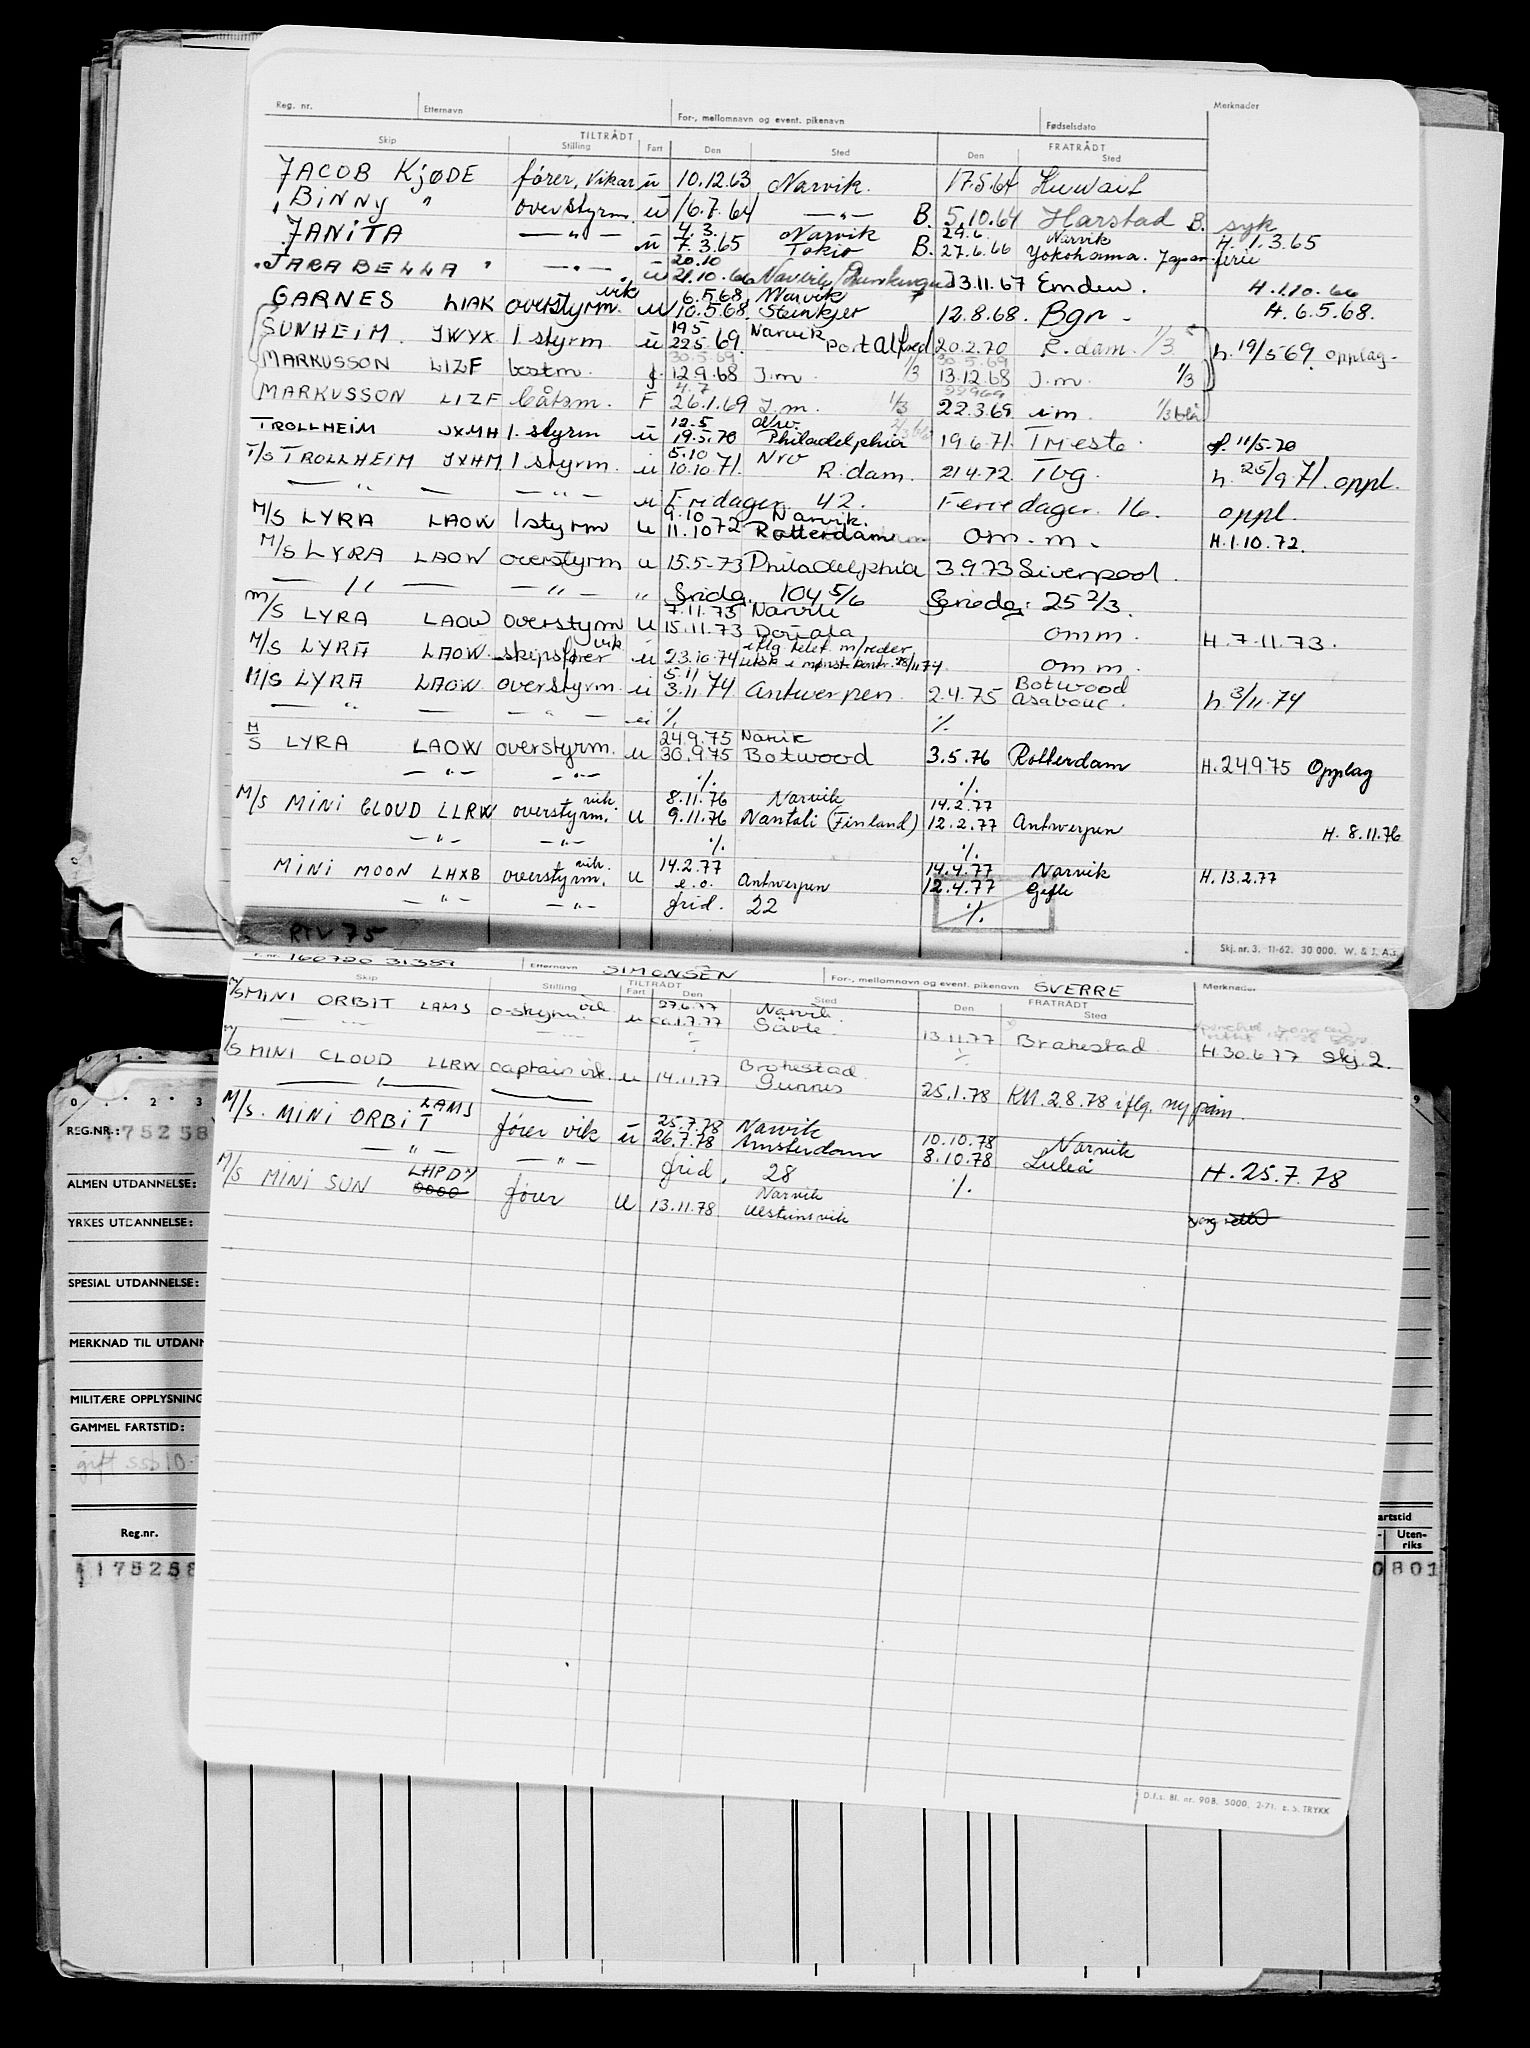 Reg. nr. Etternavn For-, mellomnavn og event. pikenavn Fødselsdato Merknader
TILTRÅDT FRATRÅDT
Skip Stilling Fart Den Sted Den Sted
JACOB KJØDE fører, vikar u 10.12.63 Narvik. 17.5.64 Kuwait
BINNY " overstyrm. u 16.7.64 — " — B. 5.10.64 Harstad B. syk
4.3. Narvik 29.6 Narvik
JANITA — " — u 7.3.65 Tokio B. 27.6.66 Yokohama. Japan. ferie H. 1.3.65
20.10
JARABELLA " — " — u 21.10.66 13.11.67 Emden. H. 1.10.66
vik 6.5.68, Narvik
GARNES LIAK overstyrm. u 10.5.68. Steinkjer 12.8.68. Bgn - H. 6.5.68.
19.5 Narvik
SUNHEIM. JWYX 1. styrm u 22.5.69. Port Alfred 20.2.70 R.dam. 1/3 h. 19/5 69. opplag-
30.5.69 30.5.69
MARKUSSON LIZF bestm. f. 12.9.68 I.m. 1/3 13.12.68 I.m. 1/3
4.7 22969
MARKUSSON LIZF båtsm. F 26.1.69 I.m. 1/3 22.3.69 i.m. 1/3 blå
12.5 Nrv.
TROLLHEIM JXMH 1. styrm u 19.5.70 Philadelphia 19.6.71. Trieste. 11/5-70
5.10 Nrv
T/S TROLLHEIM JXHM 1 styrm. u 10.10.71. R.dam. 21.4.72. Tbg. h. 25/9 71. oppl.
— " — — " — u Fridager. 42. Feriedager. 16. oppl.
9.10 Narvik.
M/S LYRA LAOW 1 styrm u 11.10 72 Rotterdam om. m. H.1.10.72.
M/S LYRA LAOW overstyrm u 15.5-73 Philadelphia 3.9 73 Liverpool.
— " — — " — " Fridg. 104 5/6 Feriedg: 25 2/3.
7.11.73 Narvik
M/S LYRA LAOW overstyrm u 15.11.73 omm. H. 7.11.73.
vik iflg. telef. m/reder
M/S LYRA LAOW. skipsfører u 23.10.74 28/11 74 om m.
5.11 Botwood
M/S LYRA LAOW. overstyrm. u 3.11 74 Antwerpen. 2.4.75 h. 3/11.74
— " — — " — u ./. ./.
24.9.75 Narvik
M/S LYRA LAOW overstyrm. u 30.9.75 Botwood 3.5.76 Rotterdam H. 24.9.75 Opplag
— " — — " — ./. ./.
vik. 8.11.76 Narvik 14.2.77
M/S MINI CLOUD LLRW overstyrm. u 9.11.76 Nantali (Finland) 12.2.77 Antwerpen H. 8.11.76
— " — — " — ./. ./.
vik. 14.2.77 14.4.77 Narvik
MINI MOON LHXB overstyrm. u e.o. Antwerpen 12.4.77 Gefle H. 13.2.77
— " — — " — frid. 22 ./.
RTV 75
Skj. nr. 3. 11-62. 30 000. W. & J. A.s
F. nr. 160720 31359 Etternavn SIMONSEN For-, mellomnavn og event. pikenavn SVERRE
TILTRÅDT FRATRÅDT Merknader
Skip Stilling Fart Den Sted Den Sted
vik 27.6.77 Narvik.
M/S MINI ORBIT LAMS o-styrm. u ca.1.7.77 Gävle. 13.11.77 Brahestad H. 30.6.77 Skj. 2.
— " — ./. ./.
Brahestad.
M/S MINI CLOUD LLRW captain vik. u 14.11.77 Gunnes 25.1.78 KM. 2.8.78 iflg. ny påm.
— " —
LAMS 25.7.78 Narvik 10.10.78 Narvik
M/S. MINI ORBIT fører vik u 26.7.78 Amsterdam 8.10.78 Luleå H. 25.7.78
— " — — " — frid, 28 ./.
LHPD Narvik
M/S MINI SUN fører u 13.11.78 Ulsteinsvik
D.f.s. Bl. nr. 90B. 5000. 2-71. E. S. TRYKK
0 1 2 3 9
REG.NR.: 175258
ALMEN UTDANNELSE:
YRKES UTDANNELSE:
SPESIAL UTDANNELSE:
MERKNAD TIL UTDANN
MILITÆRE OPPLYSNING
GAMMEL FARTSTID:
gift
Reg.nr. artstid
Uten-
riks
175258 0801